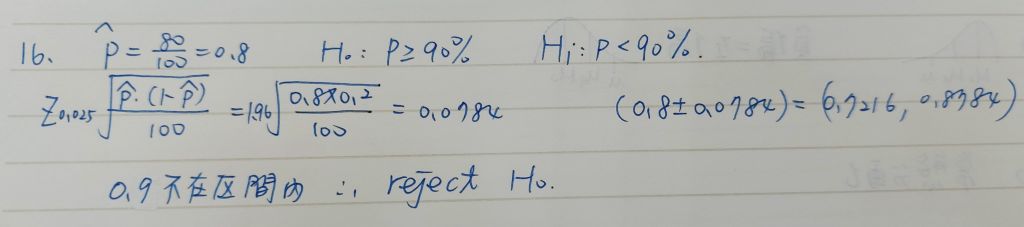 16、 p̂ = 80/100 = 0.8 H₀: P ≥ 90% H₁: P < 90%.
Z₀.₀₂₅ √(p̂·(1-p̂)/100) = 1.96 √(0.8×0.2/100) = 0.0784 (0.8 ± 0.0784) = (0.7216, 0.8784)
0.9 不在区間內 ∴ reject H₀.